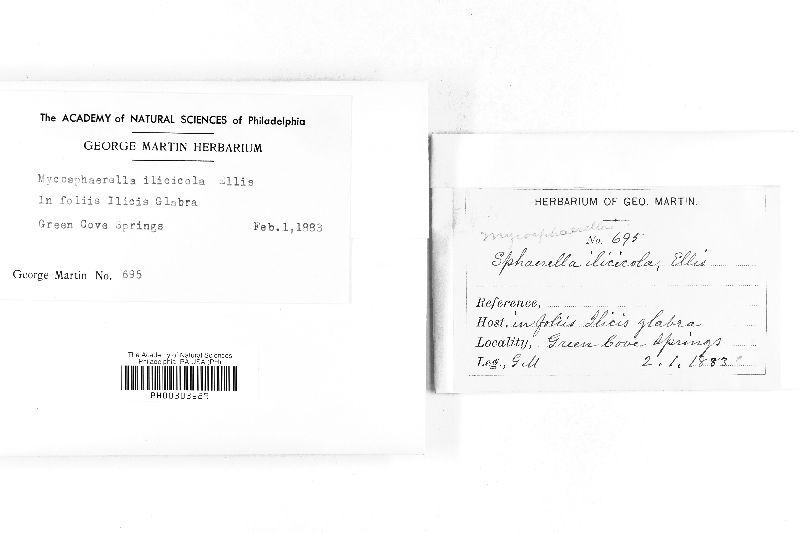 The ACADEMY of NATURAL SCIENCES of Philadelphia
GEORGE MARTIN HERBARIUM
Mycosphaerella ilicicola Ellis
In foliis Ilicis Glabra
Green Cove Springs Feb.1,1883
George Martin No. 695
The Academy of Natural Sciences
Philadelphia, PA USA (PH)
HERBARIUM OF GEO. MARTIN.
Mycosphaerella
No. 695
Sphaerella ilicicola, Ellis
Reference,
Host, in foliis Ilicis glabra
Locality, Green Cove Springs
Leg., G M 2.1.1883